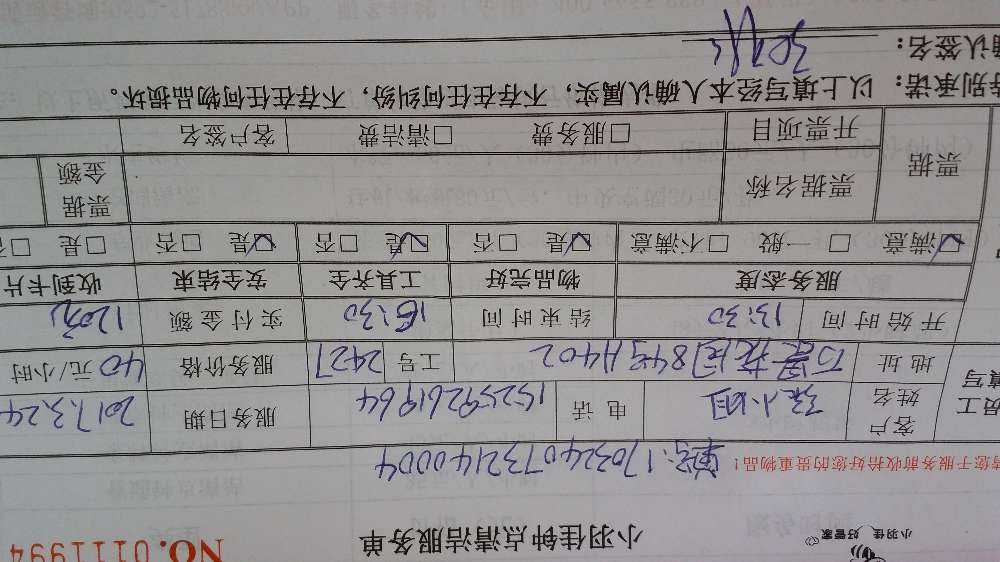 小羽佳 好管家
小羽佳钟点清洁服务单 NO. 0111994
请您于服务前收拾好您的贵重物品!
单号:17032407321440004
员工填写 客户姓名 小姐 电话 15259261964 服务日期 2017.3.24
地址 84号1402 工号 2427 服务价格 40元/小时
开始时间 13:30 结束时间 16:30 实付金额 120元
服务态度 物品完好 工具齐全 安全结束 收到卡片
☑满意 □一般 □不满意 ☑是 □否 ☑是 □否 ☑是 □否 □是 □否
票据 票据名称 票据金额
开票项目 □服务费 □清洁费 客户签名
特别承诺:以上填写经本人确认属实,不存在任何纠纷,不存在任何物品损坏。
确认签名: